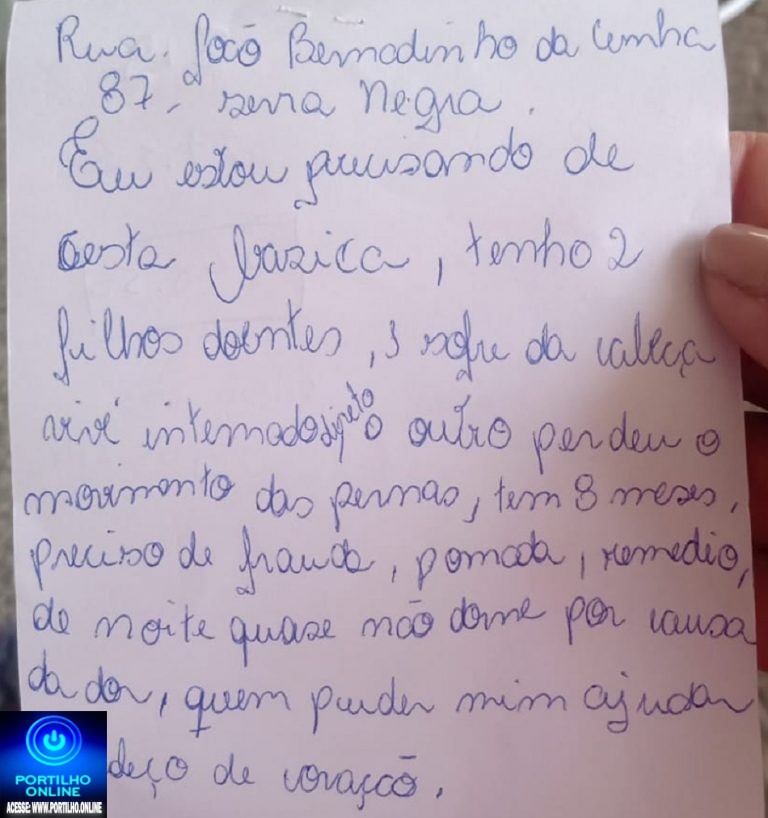 Rua. João Bernadinho da Cunha
87, serra Negra.
Eu estou precisando de
cesta bazica, tenho 2
filhos doentes, 1 sofre da cabeça
vive internado direto o outro perdeu o
movimento das pernas, tem 8 meses,
preciso de frauda, pomada, remedio,
de noite quase não dorme por causa
da dor, quem puder mim ajudar
deço de coração.
PORTILHO
ONLINE
ACESSE: WWW.PORTILHO.ONLINE